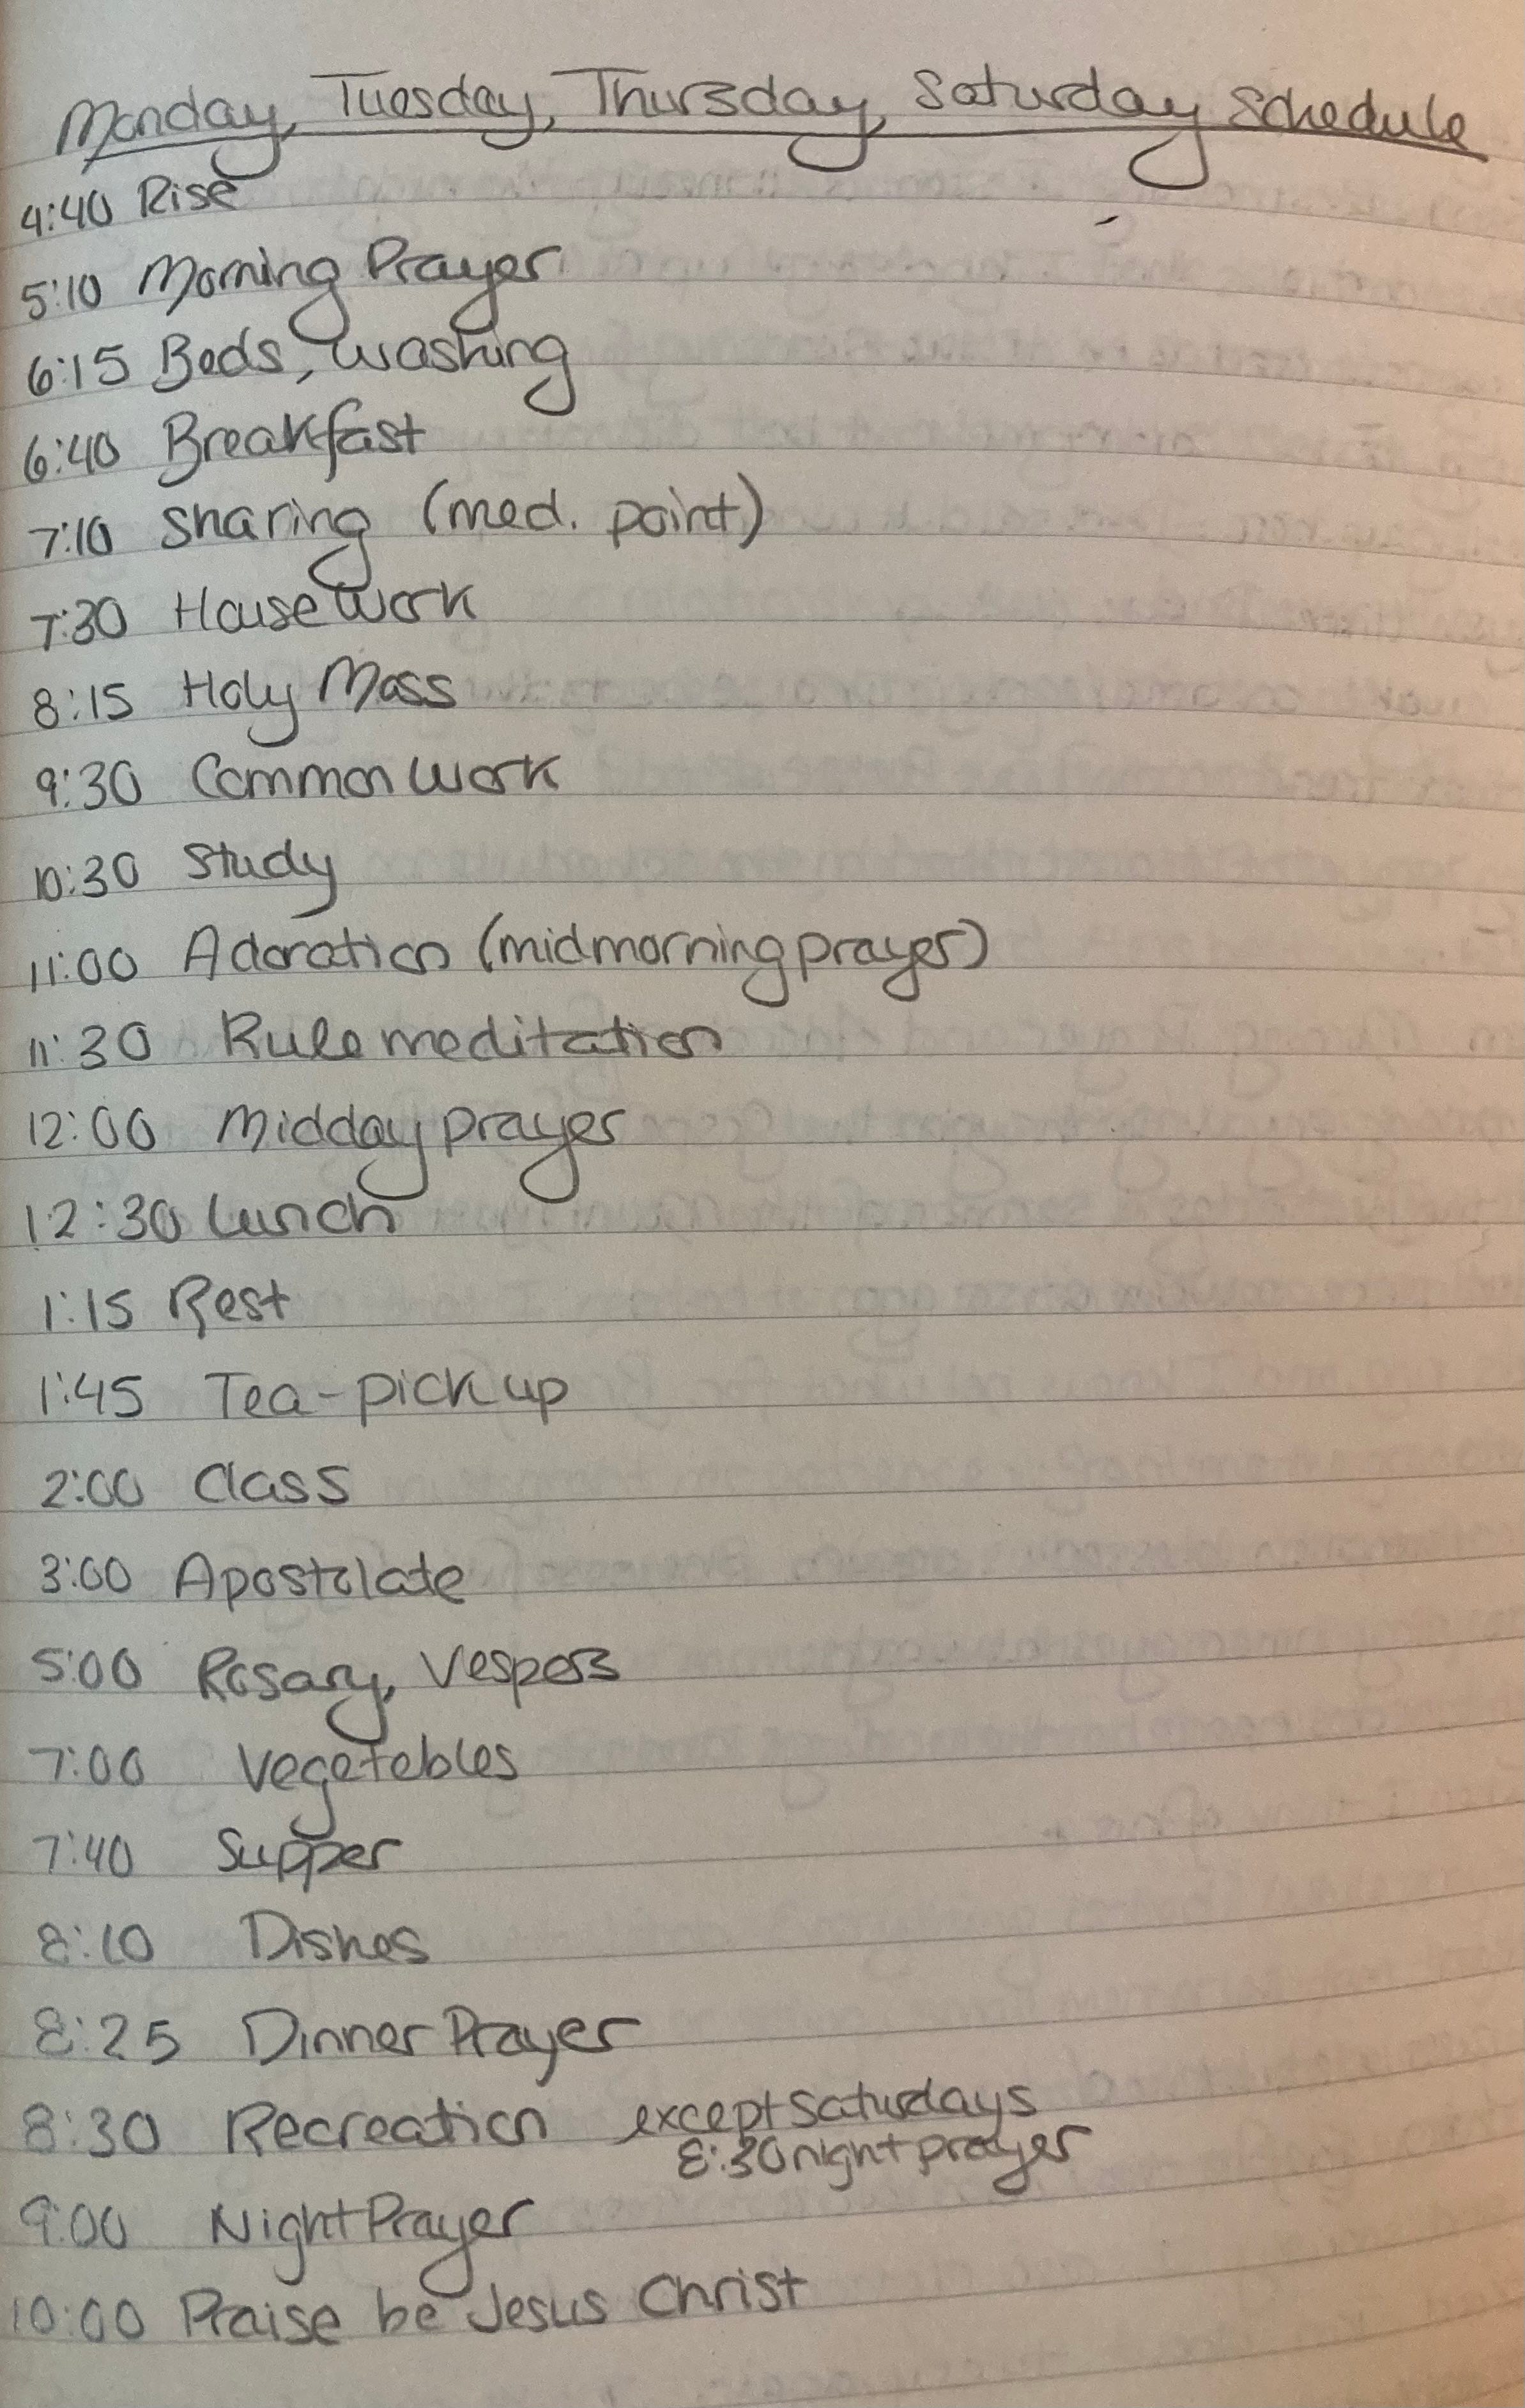 Monday, Tuesday, Thursday, Saturday Schedule
4:40 Rise
5:10 Morning Prayer
6:15 Beds, washing
6:40 Breakfast
7:10 Sharing (med. point)
7:30 House work
8:15 Holy Mass
9:30 Common work
10:30 Study
11:00 Adoration (midmorning prayer)
11:30 Rule meditation
12:00 Midday prayer
12:30 Lunch
1:15 Rest
1:45 Tea-pick up
2:00 Class
3:00 Apostolate
5:00 Rosary, Vespers
7:00 Vegetebles
7:40 Supper
8:10 Dishes
8:25 Dinner Prayer
8:30 Recreation except Saturdays
8:30 night prayer
9:00 Night Prayer
10:00 Praise be Jesus Christ